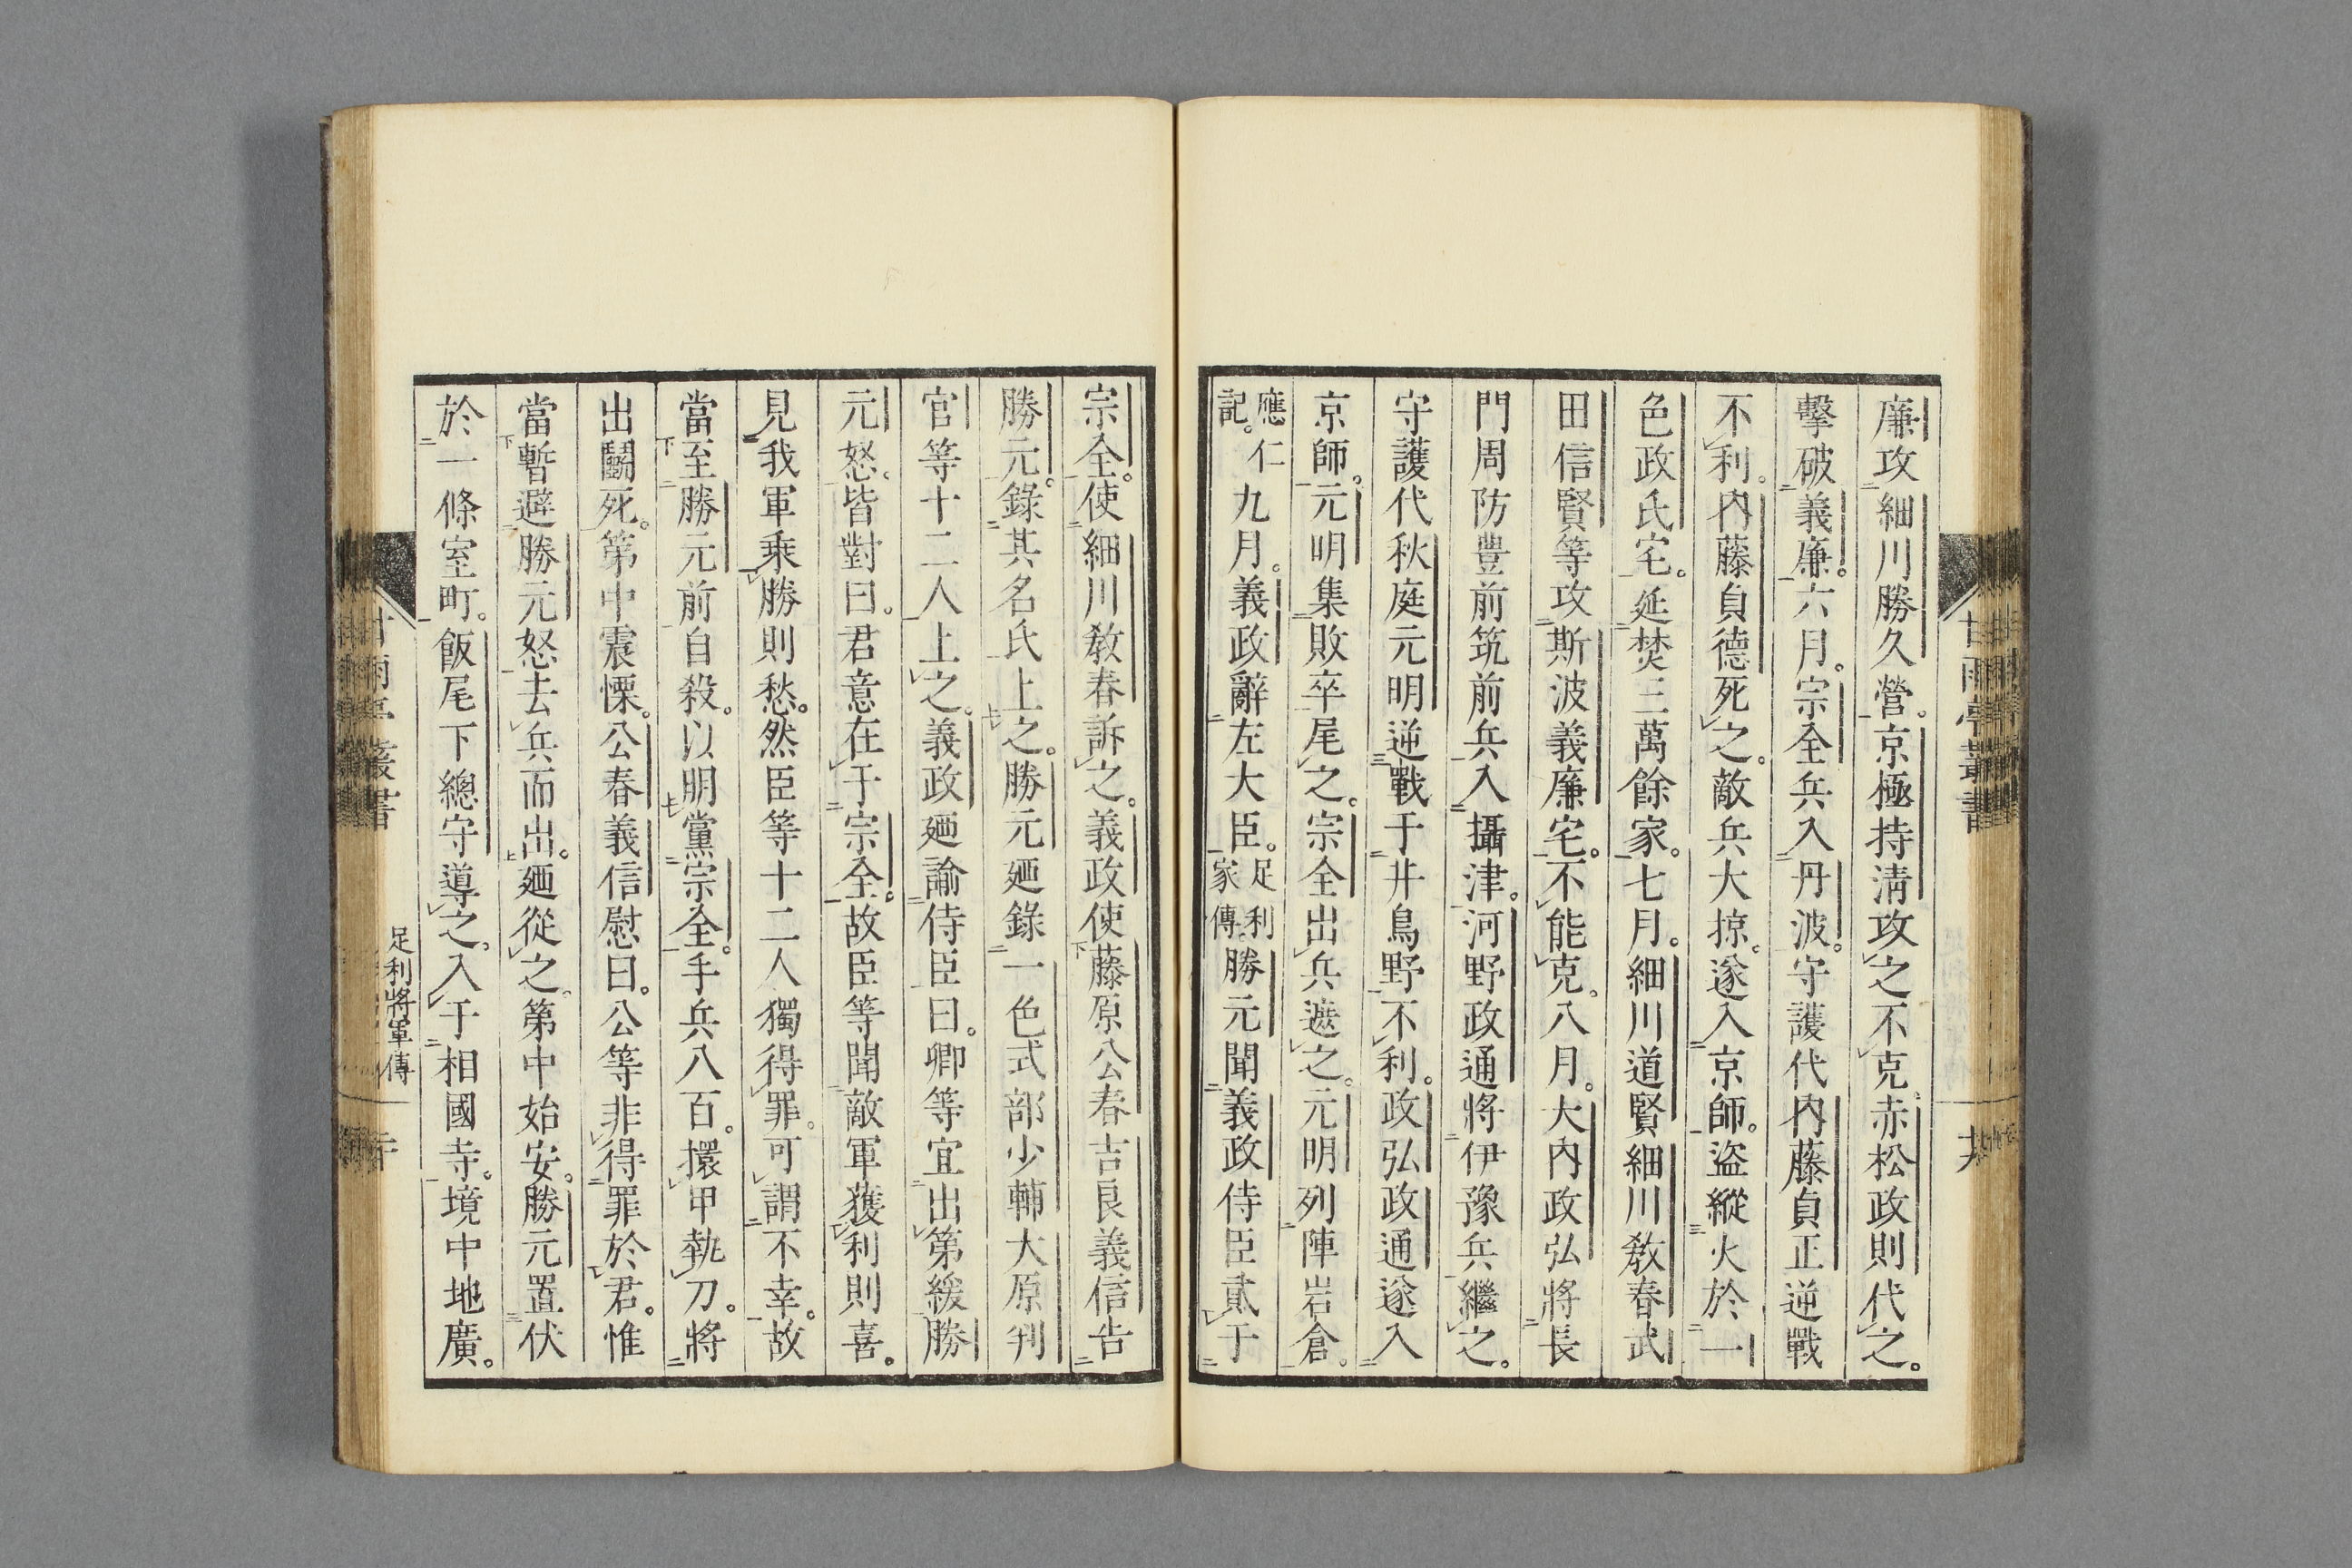 廉攻細川勝久營。京極持清攻之不克。赤松政則代之。
擊破義廉。六月。宗全兵入丹波。守護代内藤貞正逆戰
不利。内藤貞德死之。敵兵大掠。遂入京師。盜縱火於一
色政氏宅。延焚三萬餘家。七月。細川道賢細川教春武
田信賢等攻斯波義廉宅。不能克。八月。大内政弘將長
門周防豐前筑前兵入攝津。河野政通將伊豫兵繼之。
守護代秋庭元明逆戰于井鳥野不利。政弘政通遂入
京師。元明集敗卒尾之。宗全出兵遮之。元明列陣岩倉。
應仁記。九月。義政辭左大臣。足利家傳。勝元聞義政侍臣貳于
宗全。使細川教春訴之。義政使藤原公春吉良義信告
勝元。錄其名氏上之。勝元廼錄一色式部少輔大原判
官等十二人上之。義政廼諭侍臣曰。卿等宜出第緩勝
元怒。皆對曰。君意在于宗全。故臣等聞敵軍獲利則喜。
見我軍乘勝則愁。然臣等十二人獨得罪。可謂不幸。故
當至勝元前自殺。以明黨宗全。手兵八百。擐甲執刀。將
出鬪死。第中震慄。公春義信慰曰。公等非得罪於君。惟
當暫避勝元怒去兵而出。廼從之。第中始安。勝元置伏
於一條室町。飯尾下總守導之。入于相國寺。境中地廣。
甘雨亭叢書
足利將軍傳